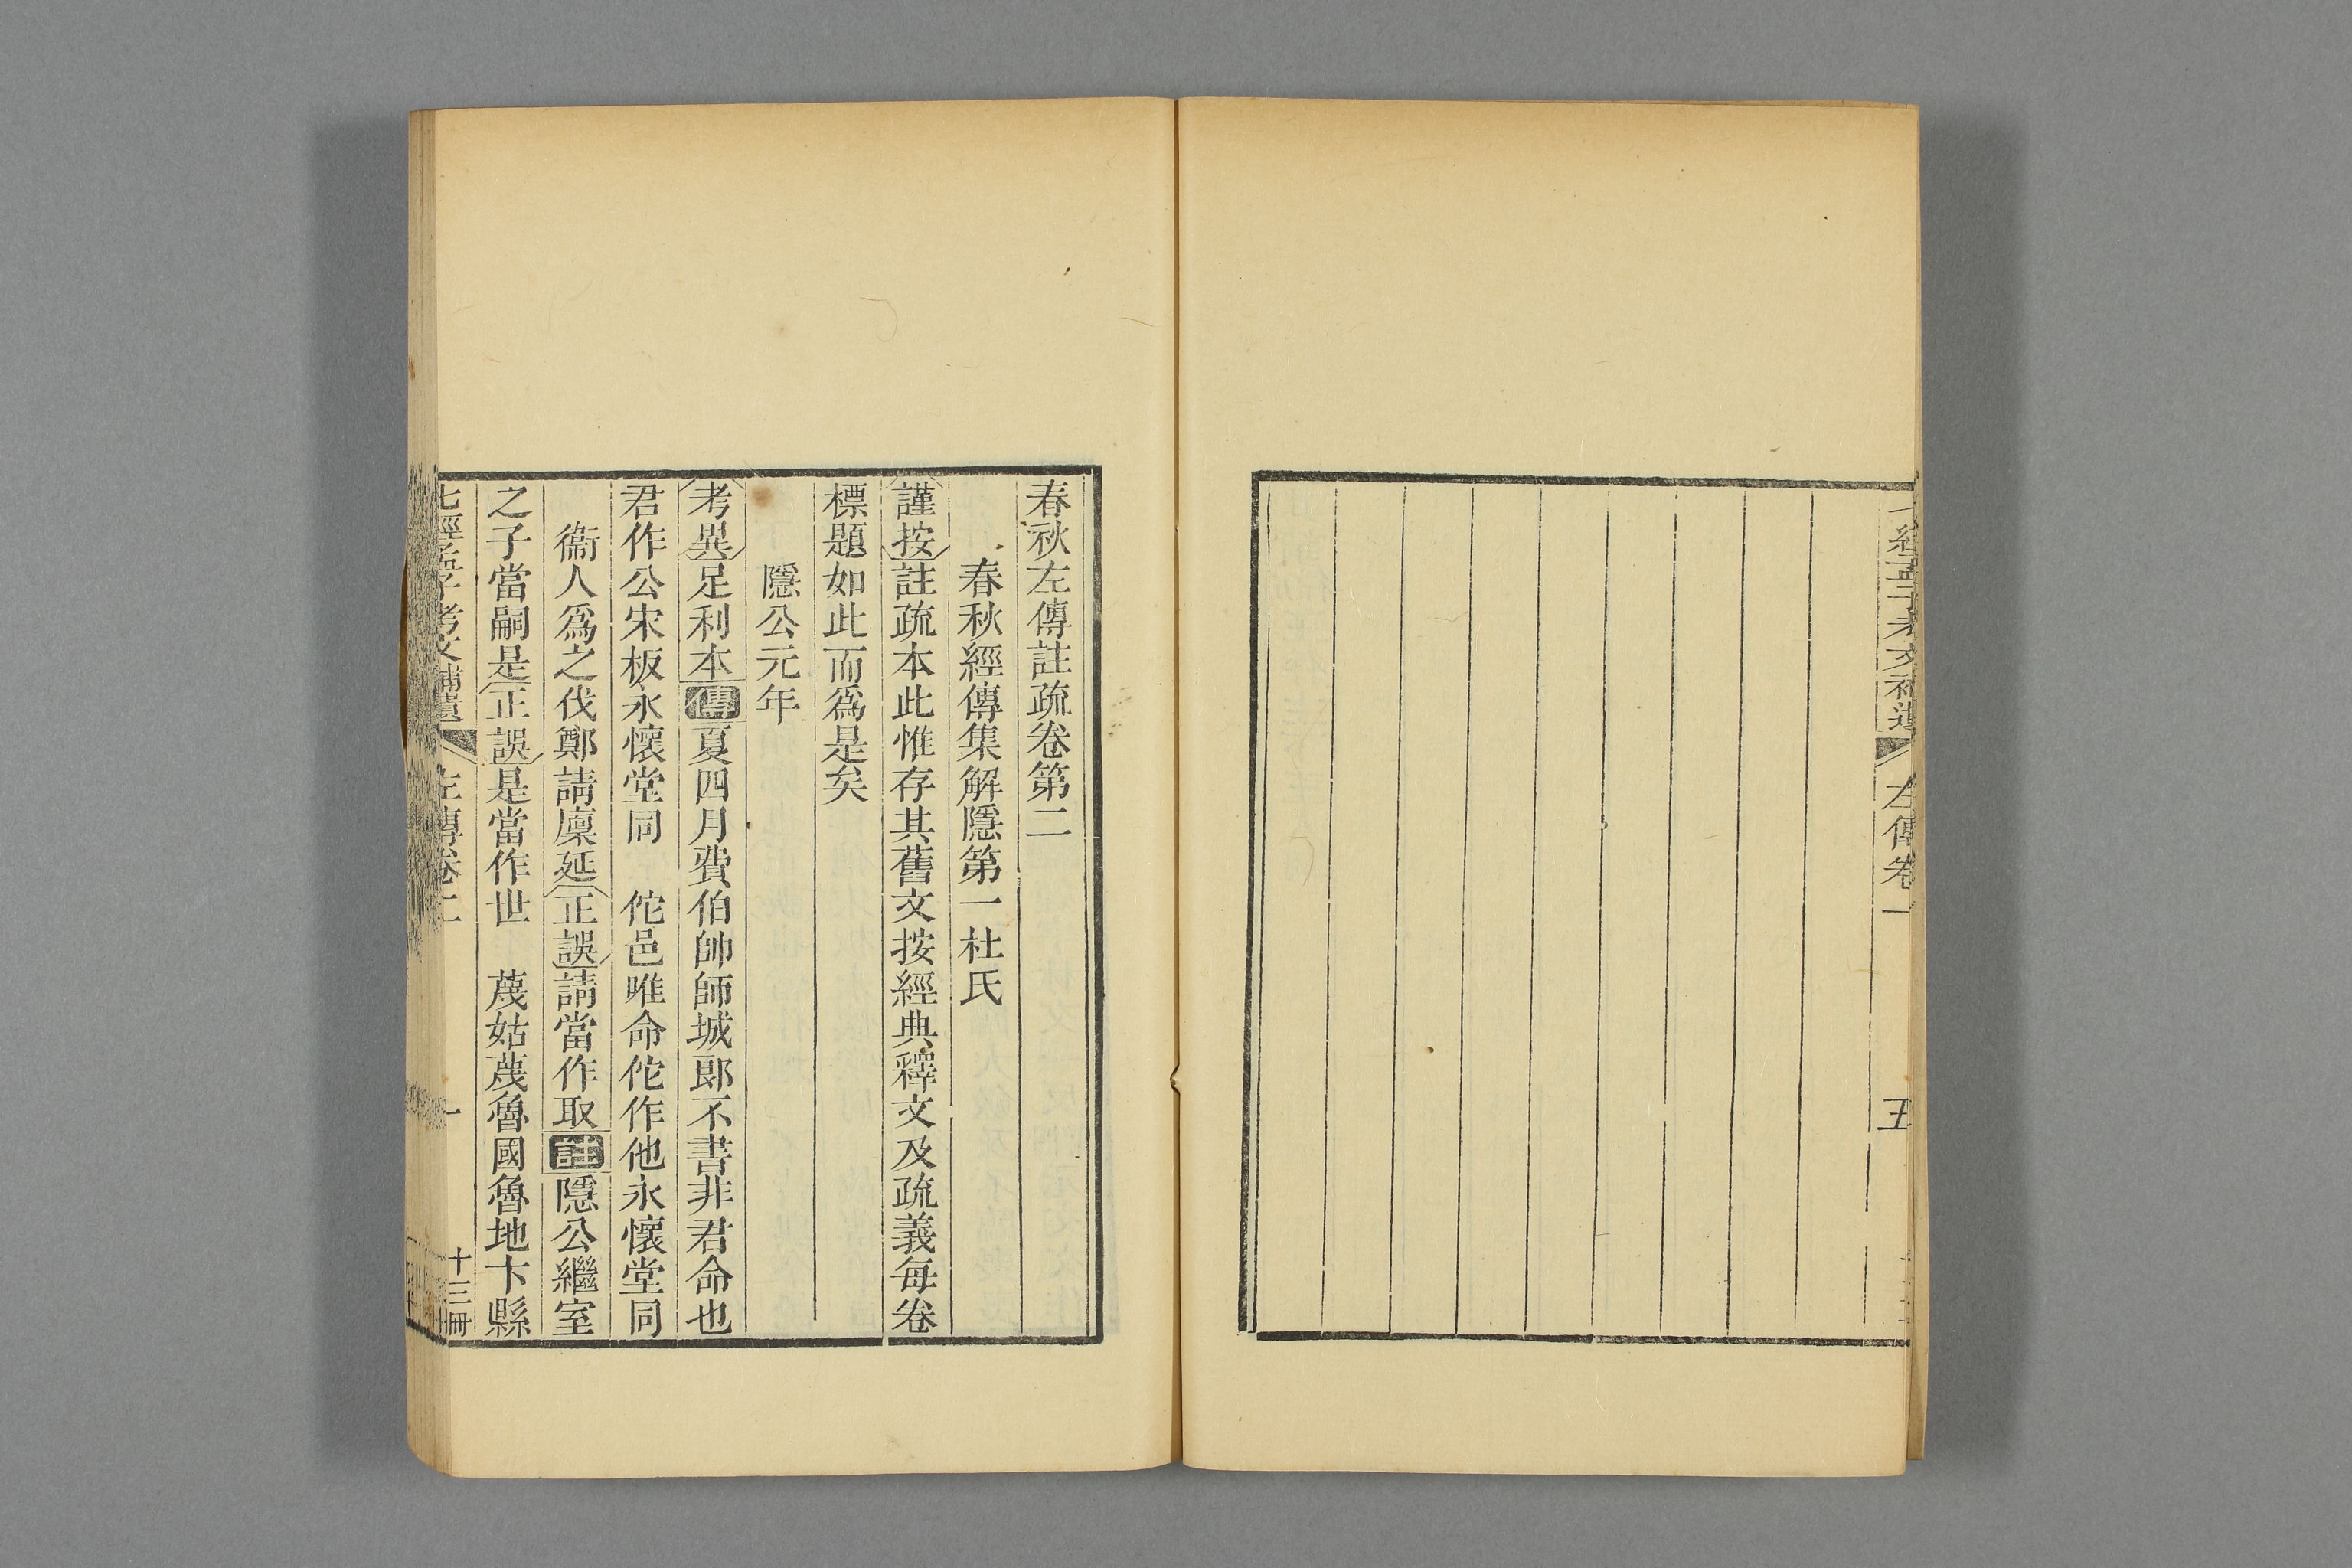 七經孟子考文補遺 左傳卷一 五
春秋左傳註疏卷第二
春秋經傳集解隱第一杜氏
謹按註疏本此惟存其舊文按經典釋文及疏義每卷
標題如此而爲是矣
隱公元年
考異足利本傳夏四月費伯帥師城郞不書非君命也
君作公宋板永懷堂同 佗邑唯命佗作他永懷堂同
衞人爲之伐鄭請廩延正誤請當作取註隱公繼室
之子當嗣是正誤是當作世 蔑姑蔑魯國魯地卞縣
七經孟子考文補遺 左傳卷二 一 十三冊